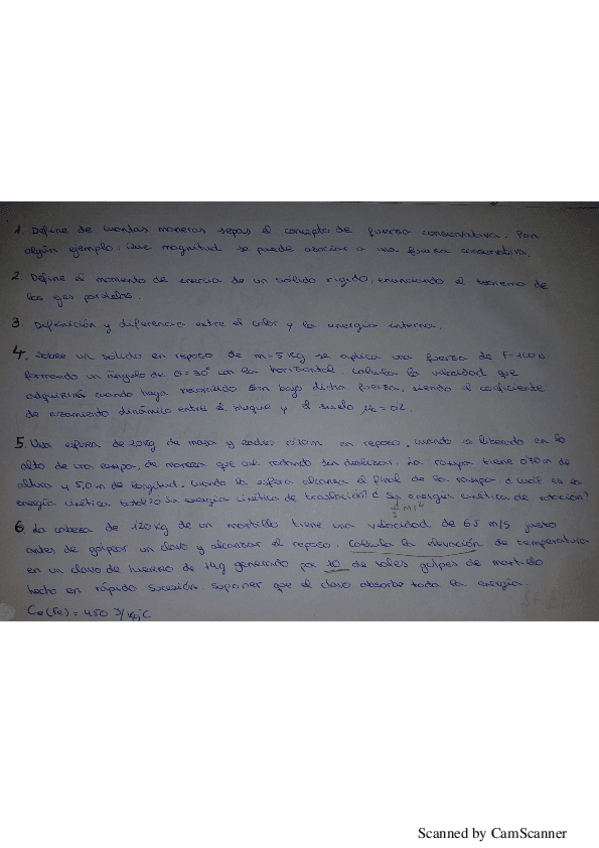 1. Define de cuantas maneras sepas el concepto de fuerza conservativa. Pon
algún ejemplo. Que magnitud se puede asociar a una fuerza conservativa.
2. Define el momento de inercia de un sólido rígido, enunciando el teorema de
los ejes paralelos.
3. Definición y diferencia entre el calor y la energía interna.
4. Sobre un sólido en reposo de m=5Kg se aplica una fuerza de F=100N
formando un ángulo de θ=30° con la horizontal. Calcula la velocidad que
adquirirá cuando haya recorrido 5m bajo dicha fuerza, siendo el coeficiente
de rozamiento dinámico entre el bloque y el suelo μc=0'2.
5. Una esfera de 20Kg de masa y radio 0'10m en reposo, cuando es liberado en lo
alto de una rampa, de manera que cae rodando sin deslizar. La rampa tiene 0'70m de
altura y 5,0m de longitud. Cuando la esfera alcanza el final de la rampa ¿cuál es la
energía cinética total? ¿Su energía cinética de traslación? ¿Su energía cinética de rotación?
mr²
6. La cabeza de 1'20Kg de un martillo tiene una velocidad de 6'5 m/s justo
antes de golpear un clavo y alcanzar el reposo. Calcula la elevación de temperatura
en un clavo de hierro de 14g generado por 10 de tales golpes de martillo
hecho en rápida sucesión. Suponer que el clavo absorbe toda la energía.
Ce(Fe)=450 J/Kg°C
Scanned by CamScanner